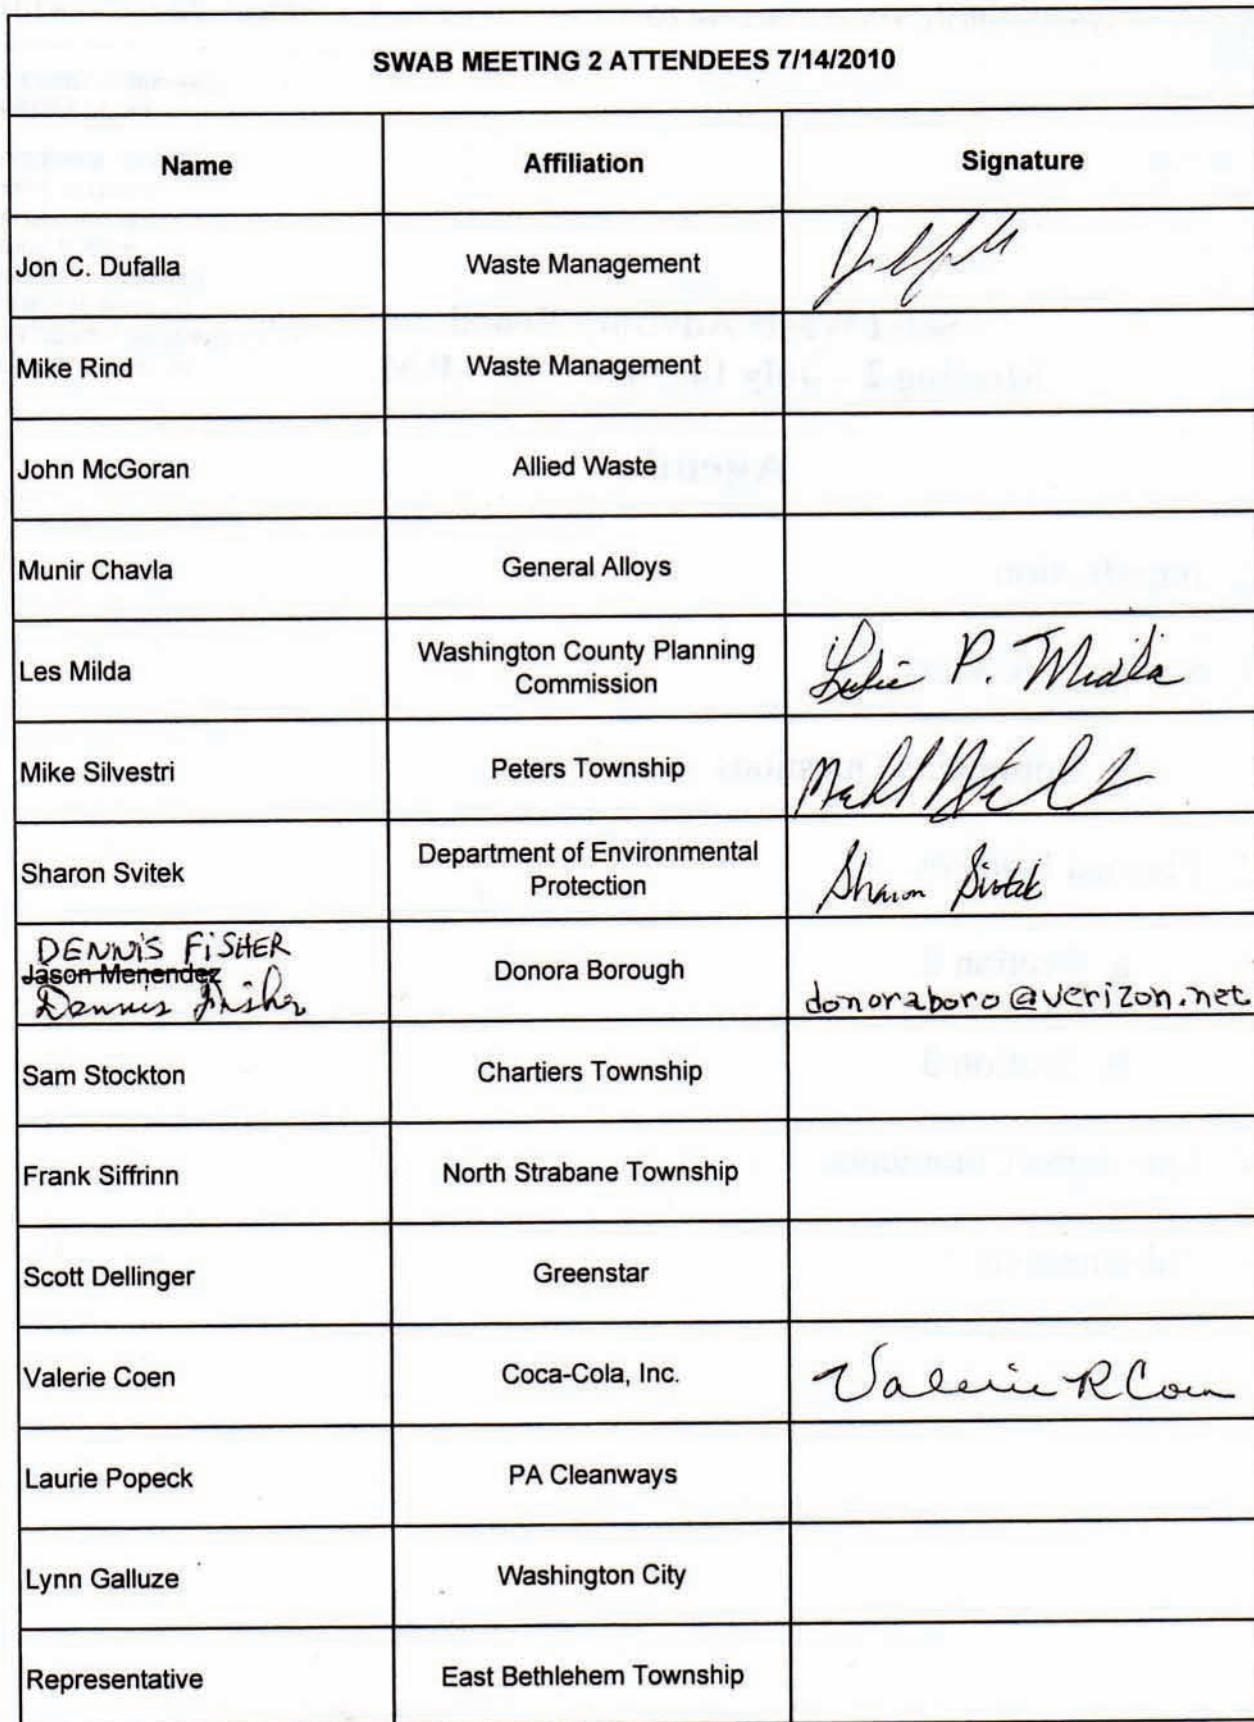 SWAB MEETING 2 ATTENDEES 7/14/2010
Name Affiliation Signature
Jon C. Dufalla Waste Management
Mike Rind Waste Management
John McGoran Allied Waste
Munir Chavla General Alloys
Les Milda Washington County Planning Commission Leslie P. Milda
Mike Silvestri Peters Township
Sharon Svitek Department of Environmental Protection Sharon Svitek
DENNIS FISHER
Jason Menendez Donora Borough donoraboro@verizon.net
Dennis Fisher
Sam Stockton Chartiers Township
Frank Siffrinn North Strabane Township
Scott Dellinger Greenstar
Valerie Coen Coca-Cola, Inc. Valerie R Coen
Laurie Popeck PA Cleanways
Lynn Galluze Washington City
Representative East Bethlehem Township